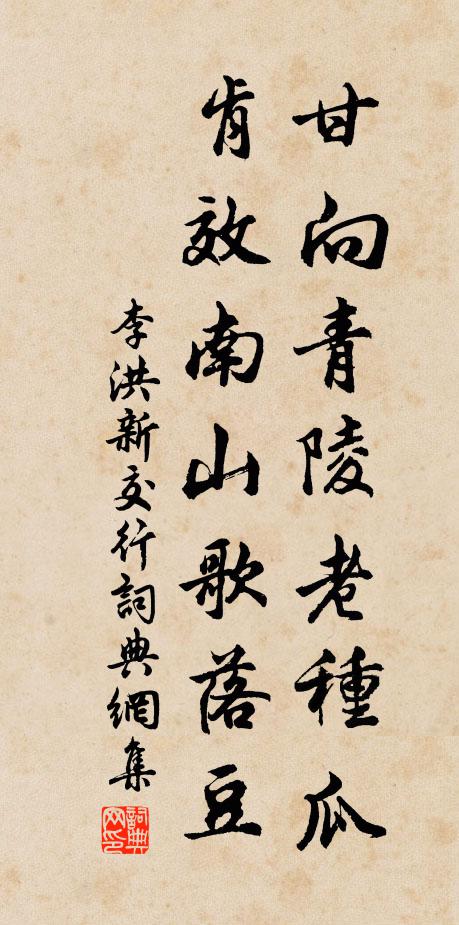 甘向青陵老種瓜
肯效南山歌落豆
李洪新交行詞典網集
詞典網印